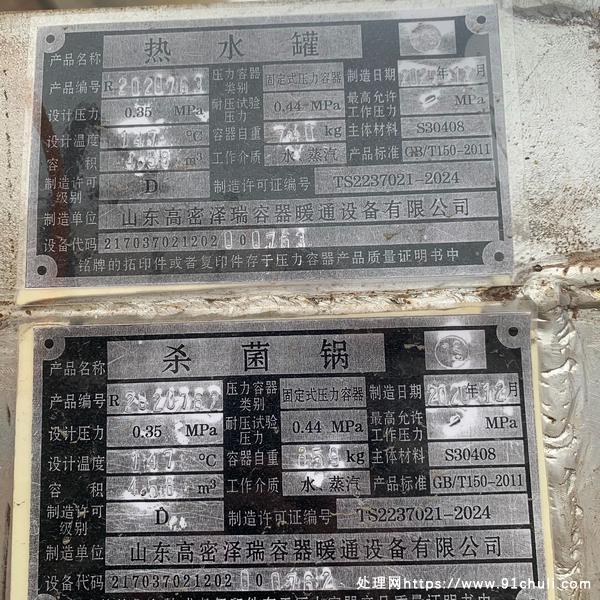 产品名称 热水罐
产品编号 R 压力容器类别 固定式压力容器 制造日期 年12月
设计压力 0.35 MPa 耐压试验压力 0.44 MPa 最高允许工作压力 MPa
设计温度 147 ℃ 容器自重 kg 主体材料 S30408
容积 m³ 工作介质 水、蒸汽 产品标准 GB/T150-2011
制造许可级别 D 制造许可证编号 TS2237021-2024
制造单位 山东高密泽瑞容器暖通设备有限公司
设备代码 217037021202
铭牌的拓印件或者复印件存于压力容器产品质量证明书中
产品名称 杀菌锅
产品编号 R 压力容器类别 固定式压力容器 制造日期 年12月
设计压力 0.35 MPa 耐压试验压力 0.44 MPa 最高允许工作压力 MPa
设计温度 147 ℃ 容器自重 kg 主体材料 S30408
容积 m³ 工作介质 水、蒸汽 产品标准 GB/T150-2011
制造许可级别 D 制造许可证编号 TS2237021-2024
制造单位 山东高密泽瑞容器暖通设备有限公司
设备代码 217037021202
处理网https://www.91chuli.com/